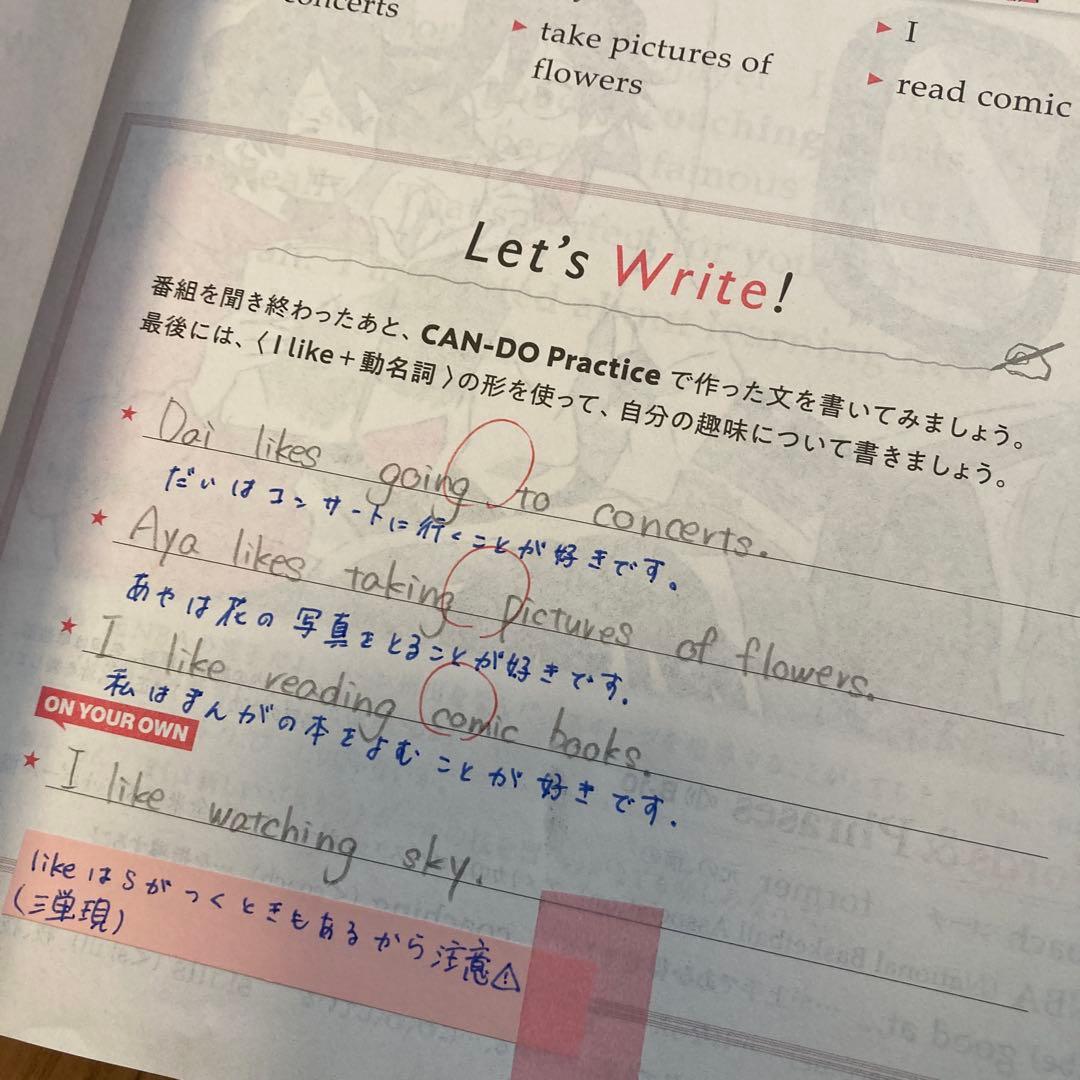 concerts
▶ take pictures of
flowers
▶ I
▶ read comic
Let's Write!
番組を聞き終わったあと、CAN-DO Practice で作った文を書いてみましょう。
最後には、〈I like + 動名詞〉の形を使って、自分の趣味について書きましょう。
★ Dai likes going to concerts.
だいはコンサートに行くことが好きです。
★ Aya likes taking pictures of flowers.
あやは花の写真をとることが好きです。
★ I like reading comic books.
私はまんがの本をよむことが好きです。
ON YOUR OWN
★ I like watching sky.
likeはsがつくときもあるから注意⚠
(三単現)